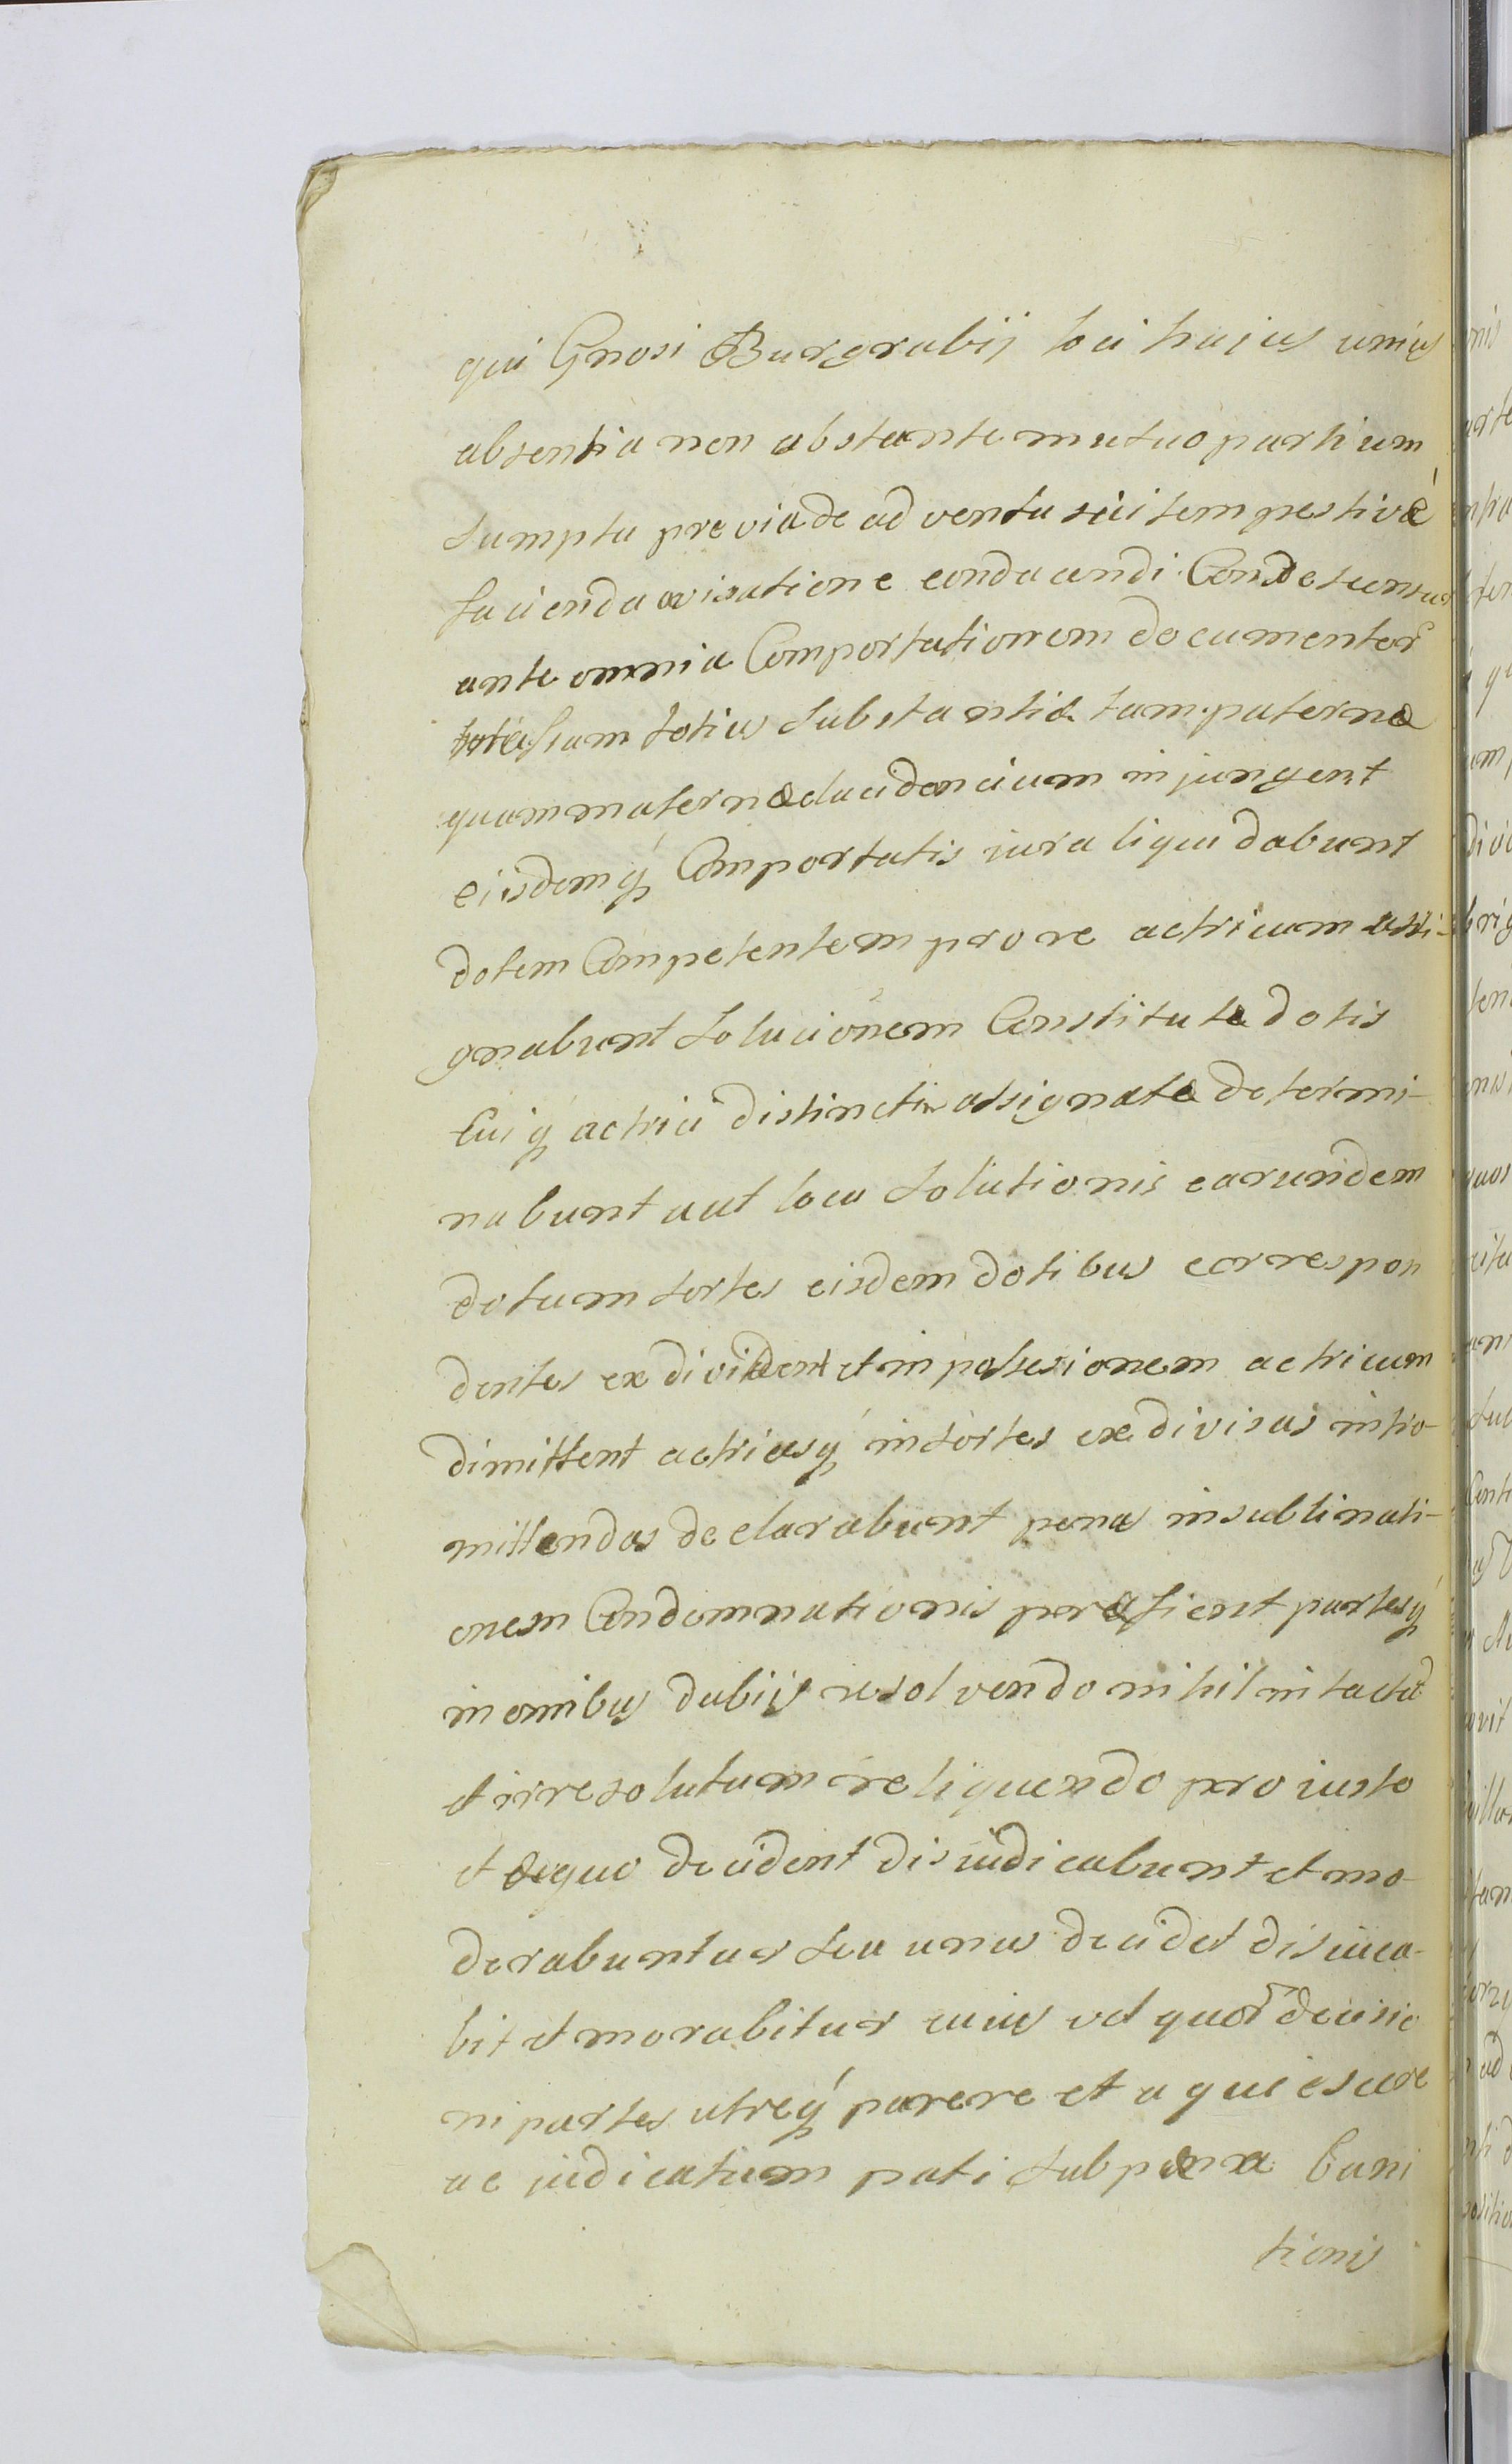 qui Gnosi Burgrabij loci hujus unius
absentia non obstante mutuo partium
sumptu previa de adventu sui tempestivè
facienda avisatione conducendi Condescensus
ante omnia Comportationem documentor
totius substantiæ tam paternæ
quam maternæ elucidancium injungent
eisdemq́ Comportatis jura liquidabunt
dotem Competentem pro re actricum assi-
gnabunt solucionem Constitutæ dotis
Cuiq́ actrici distinctim assignatæ determi-
nabunt aut loco solutionis earundem
dotum sortes eisdem dotibus correspon
dentes exdivident et in possesionem actricum
dimittent actricesq́ in sortes exdivisas intro-
mittendas declarabunt penas in sublinati-
onem Condemnationis præfient partesq́
in omnibus dubijs resolvendo nihil intactu
et irresolutum reliquendo pro iusto
et æquo decident disiudicabunt et mo-
derabuntur seu unus decidet disiuca-
bit et morabitur cuius vel quor decisio
ni partes utreq́ parere et aquiescere
ac judicatum pati sub pæna bani
tionis